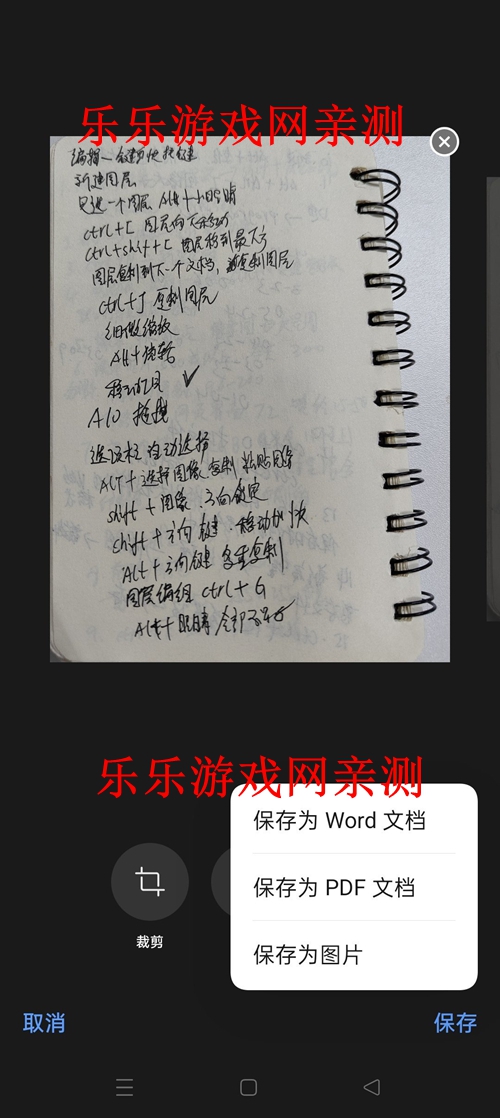 乐乐游戏网亲测
编辑一键盘快捷键
新建图层
只选一个图层 Alt+小眼睛
ctrl+C 图层向下移动
ctrl+shift+C 图层移到最下方
图层复制到下一个文档,选复制图层
ctrl+J 复制图层
细微缩放
Alt+滚轮
移动工具
A10 拖拽
选项栏 自动选择
ALT+选择图像 复制 粘贴图像
shift+图像 方向锁定
shift+方向键 移动加快
Alt+方向键 多重复制
图层编组 ctrl+G
Alt+眼睛 全部
乐乐游戏网亲测
保存为 Word 文档
保存为 PDF 文档
保存为图片
裁剪
取消
保存